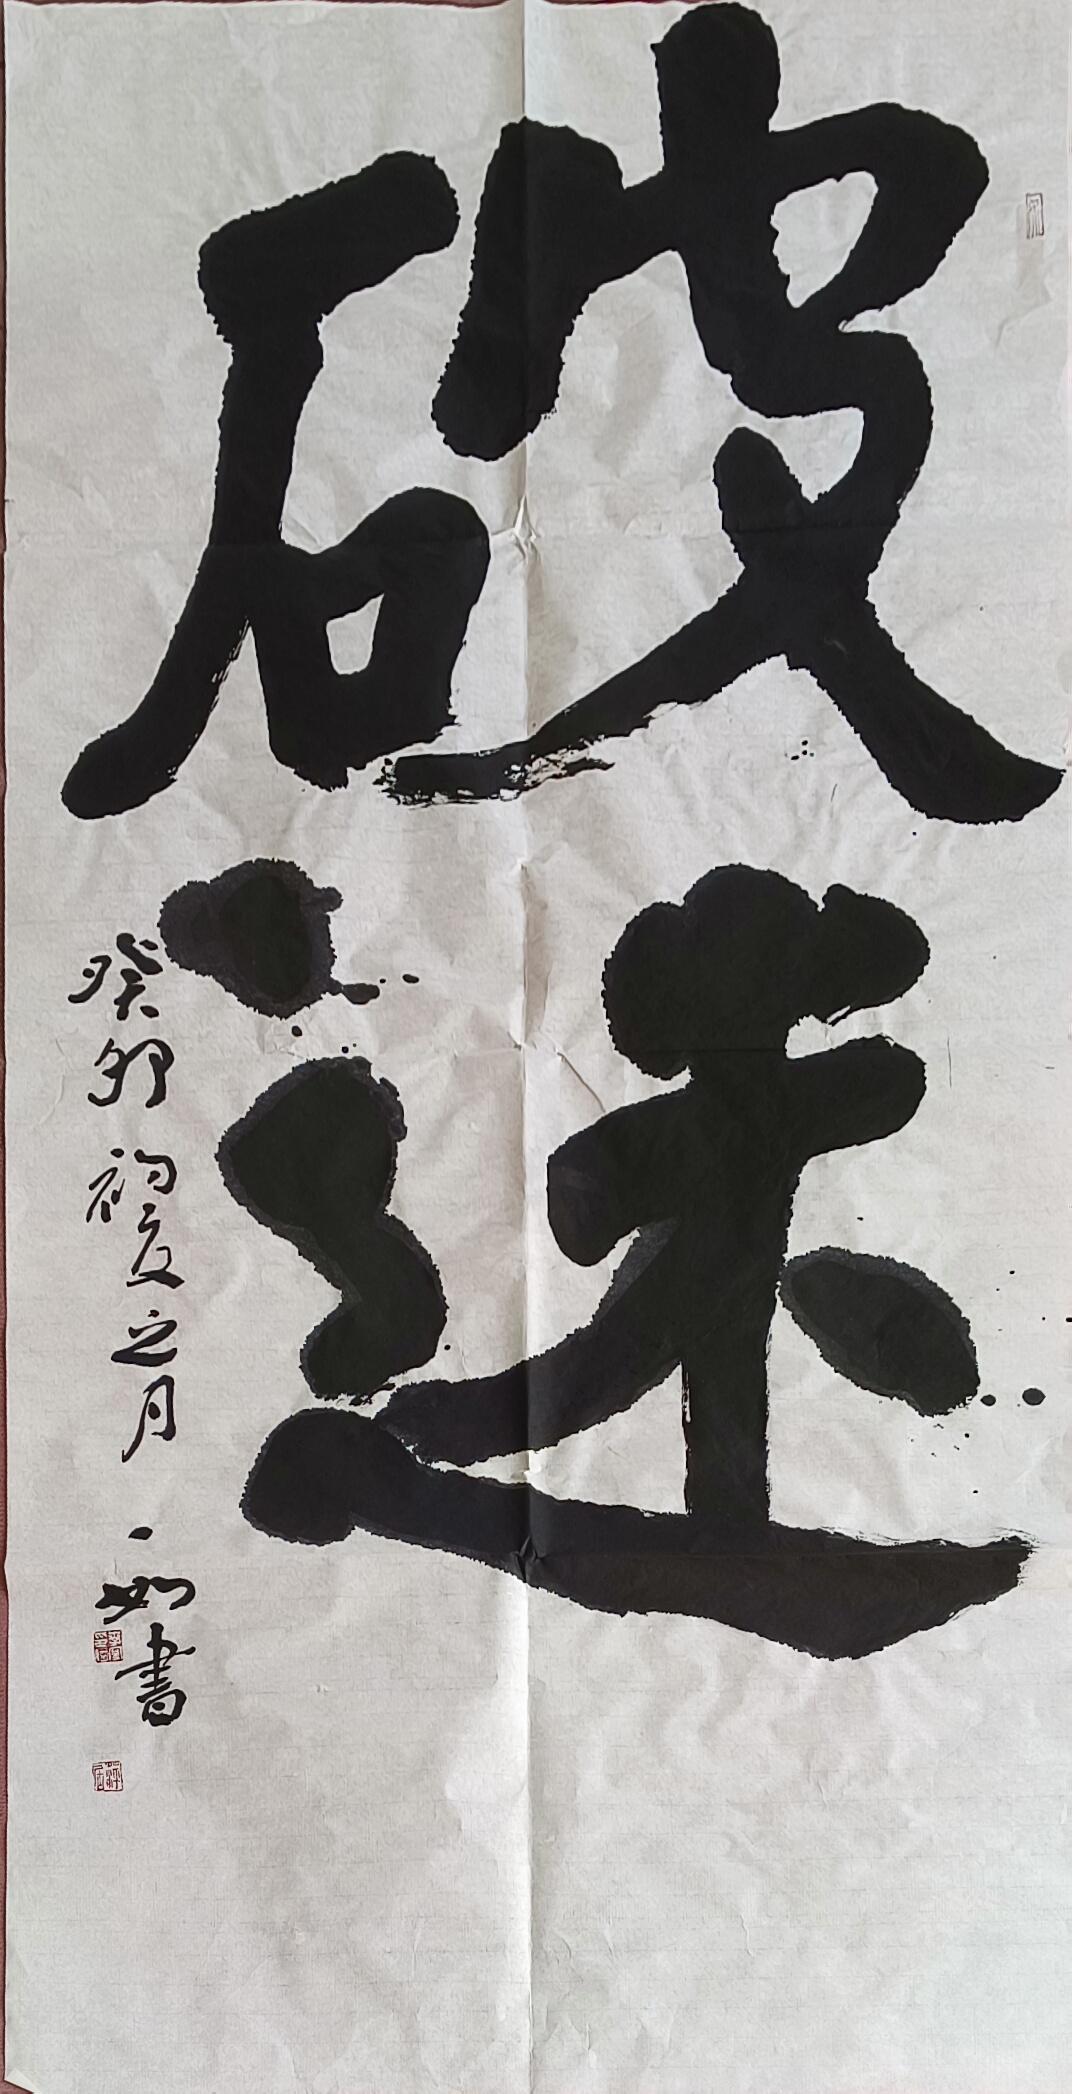 破迷
癸卯初夏之月 一如書